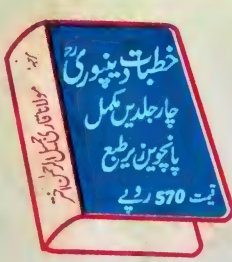 خطبات دینپوریؒ
چار جلدیں مکمل
پانچویں زیر طبع
قیمت 570 روپے
مرتبہ: مولانا قاری جمیل الرحمٰن اختر